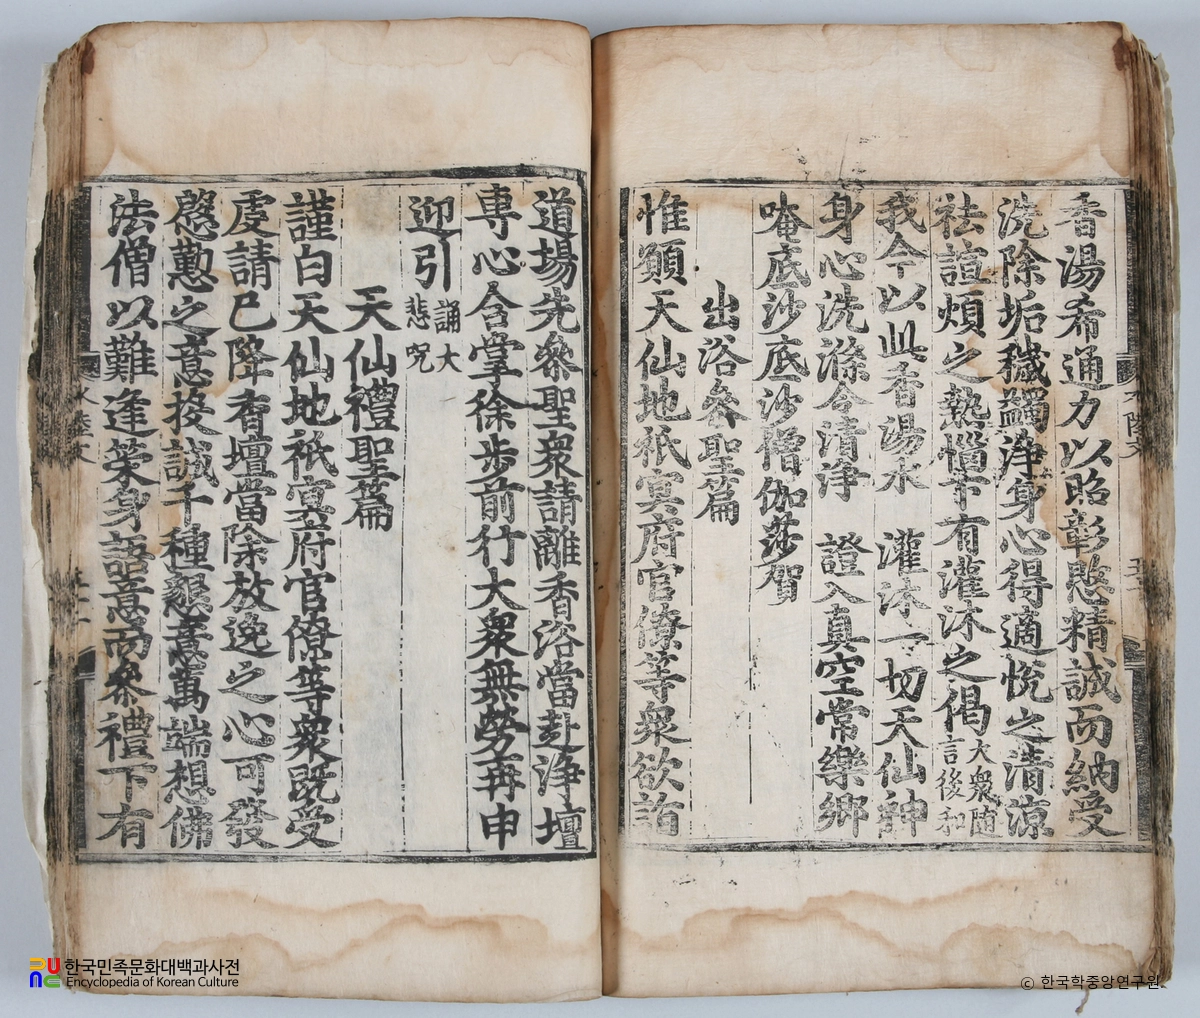 香湯希通力以昭彰愍精誠而納受
洗除垢穢蠲淨身心得適悅之清涼
祛諠煩之熱惱下有灌沐之偈大衆随言後和
我今以此香湯水　灌沐一切天仙神
身心洗滌令清淨　證入真空常樂鄉
唵底沙底沙僧伽莎賀
出浴叅聖篇
惟願天仙地祇冥府官僚等衆欲詣
道場先叅聖衆請離香浴當赴淨壇
專心合掌徐步前行大衆無勞再申
迎引誦大悲呪
天仙禮聖篇
謹白天仙地祇冥府官僚等衆既受
虔請已降香壇當除放逸之心可發
慇懃之意投誠千種懇意萬端想佛
法僧以難逢䒭身語意而叅禮下有
水陸文
한국민족문화대백과사전
Encyclopedia of Korean Culture
© 한국학중앙연구원